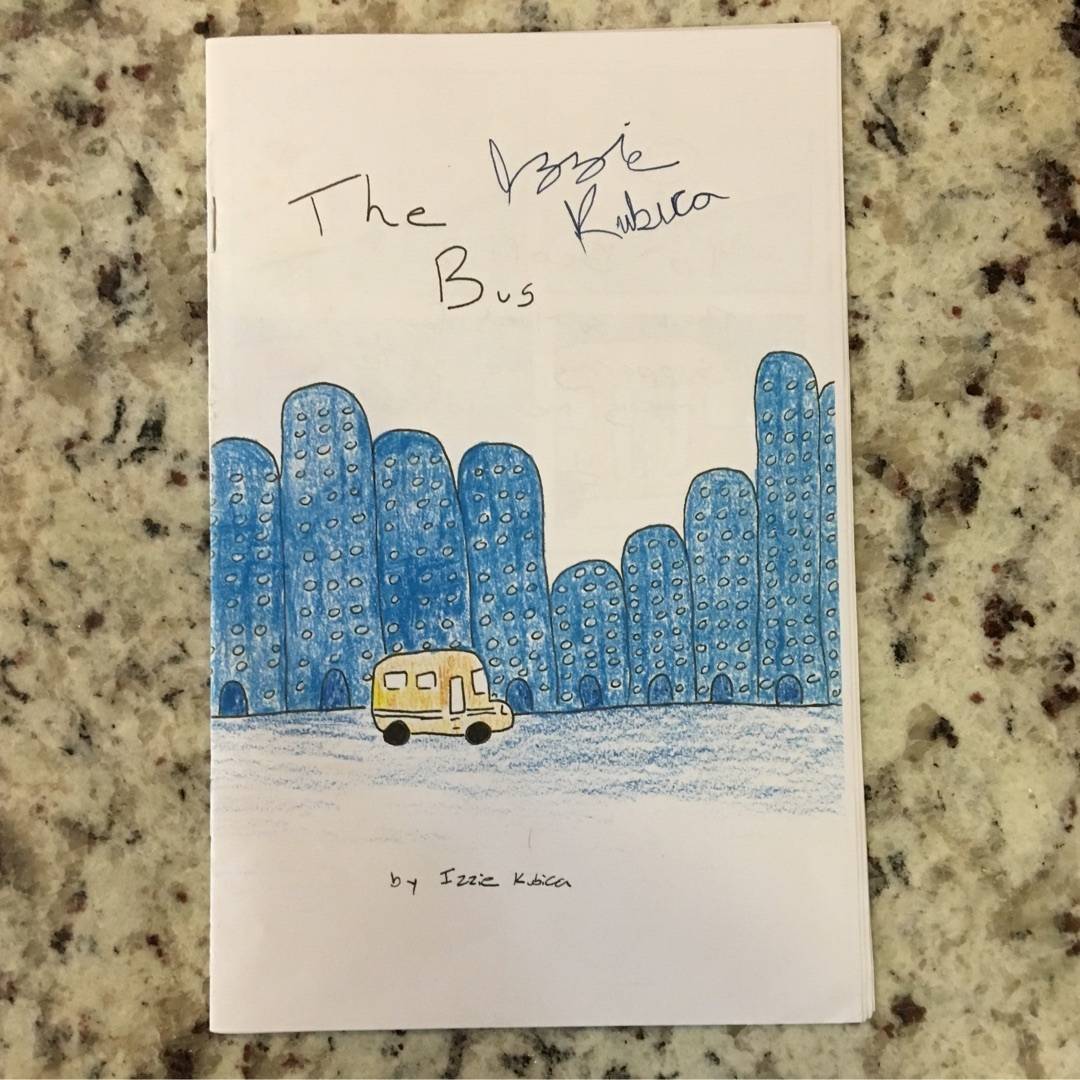 The
Bus
Izzie
Kubica
by Izzie Kubica